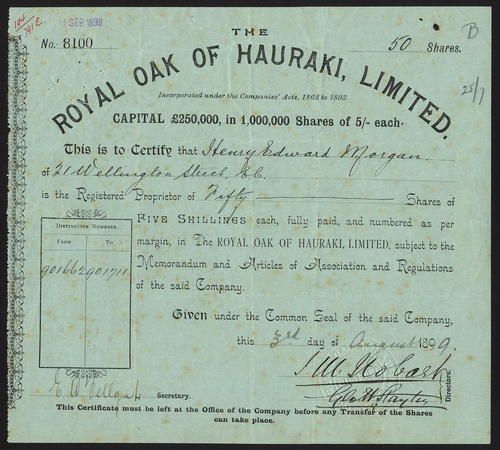 104
791E.
1 SEP 1899
THE
No. 8100
50 Shares.
B
25/7
ROYAL OAK OF HAURAKI, LIMITED.
Incorporated under the Companies' Acts, 1862 to 1893.
CAPITAL £250,000, in 1,000,000 Shares of 5/- each.
This is to Certify that Henry Edward Morgan.
of 21 Wellington Street, E.C.
is the Registered Proprietor of Fifty Shares of
DISTINCTIVE NUMBER.
FROM TO
901662 901711
FIVE SHILLINGS each, fully paid, and numbered as per
margin, in The ROYAL OAK OF HAURAKI, LIMITED, subject to the
Memorandum and Articles of Association and Regulations
of the said Company.
Given under the Common Seal of the said Company,
this 3rd day of August 1899.
Directors.
Secretary.
This Certificate must be left at the Office of the Company before any Transfer of the Shares
can take place.